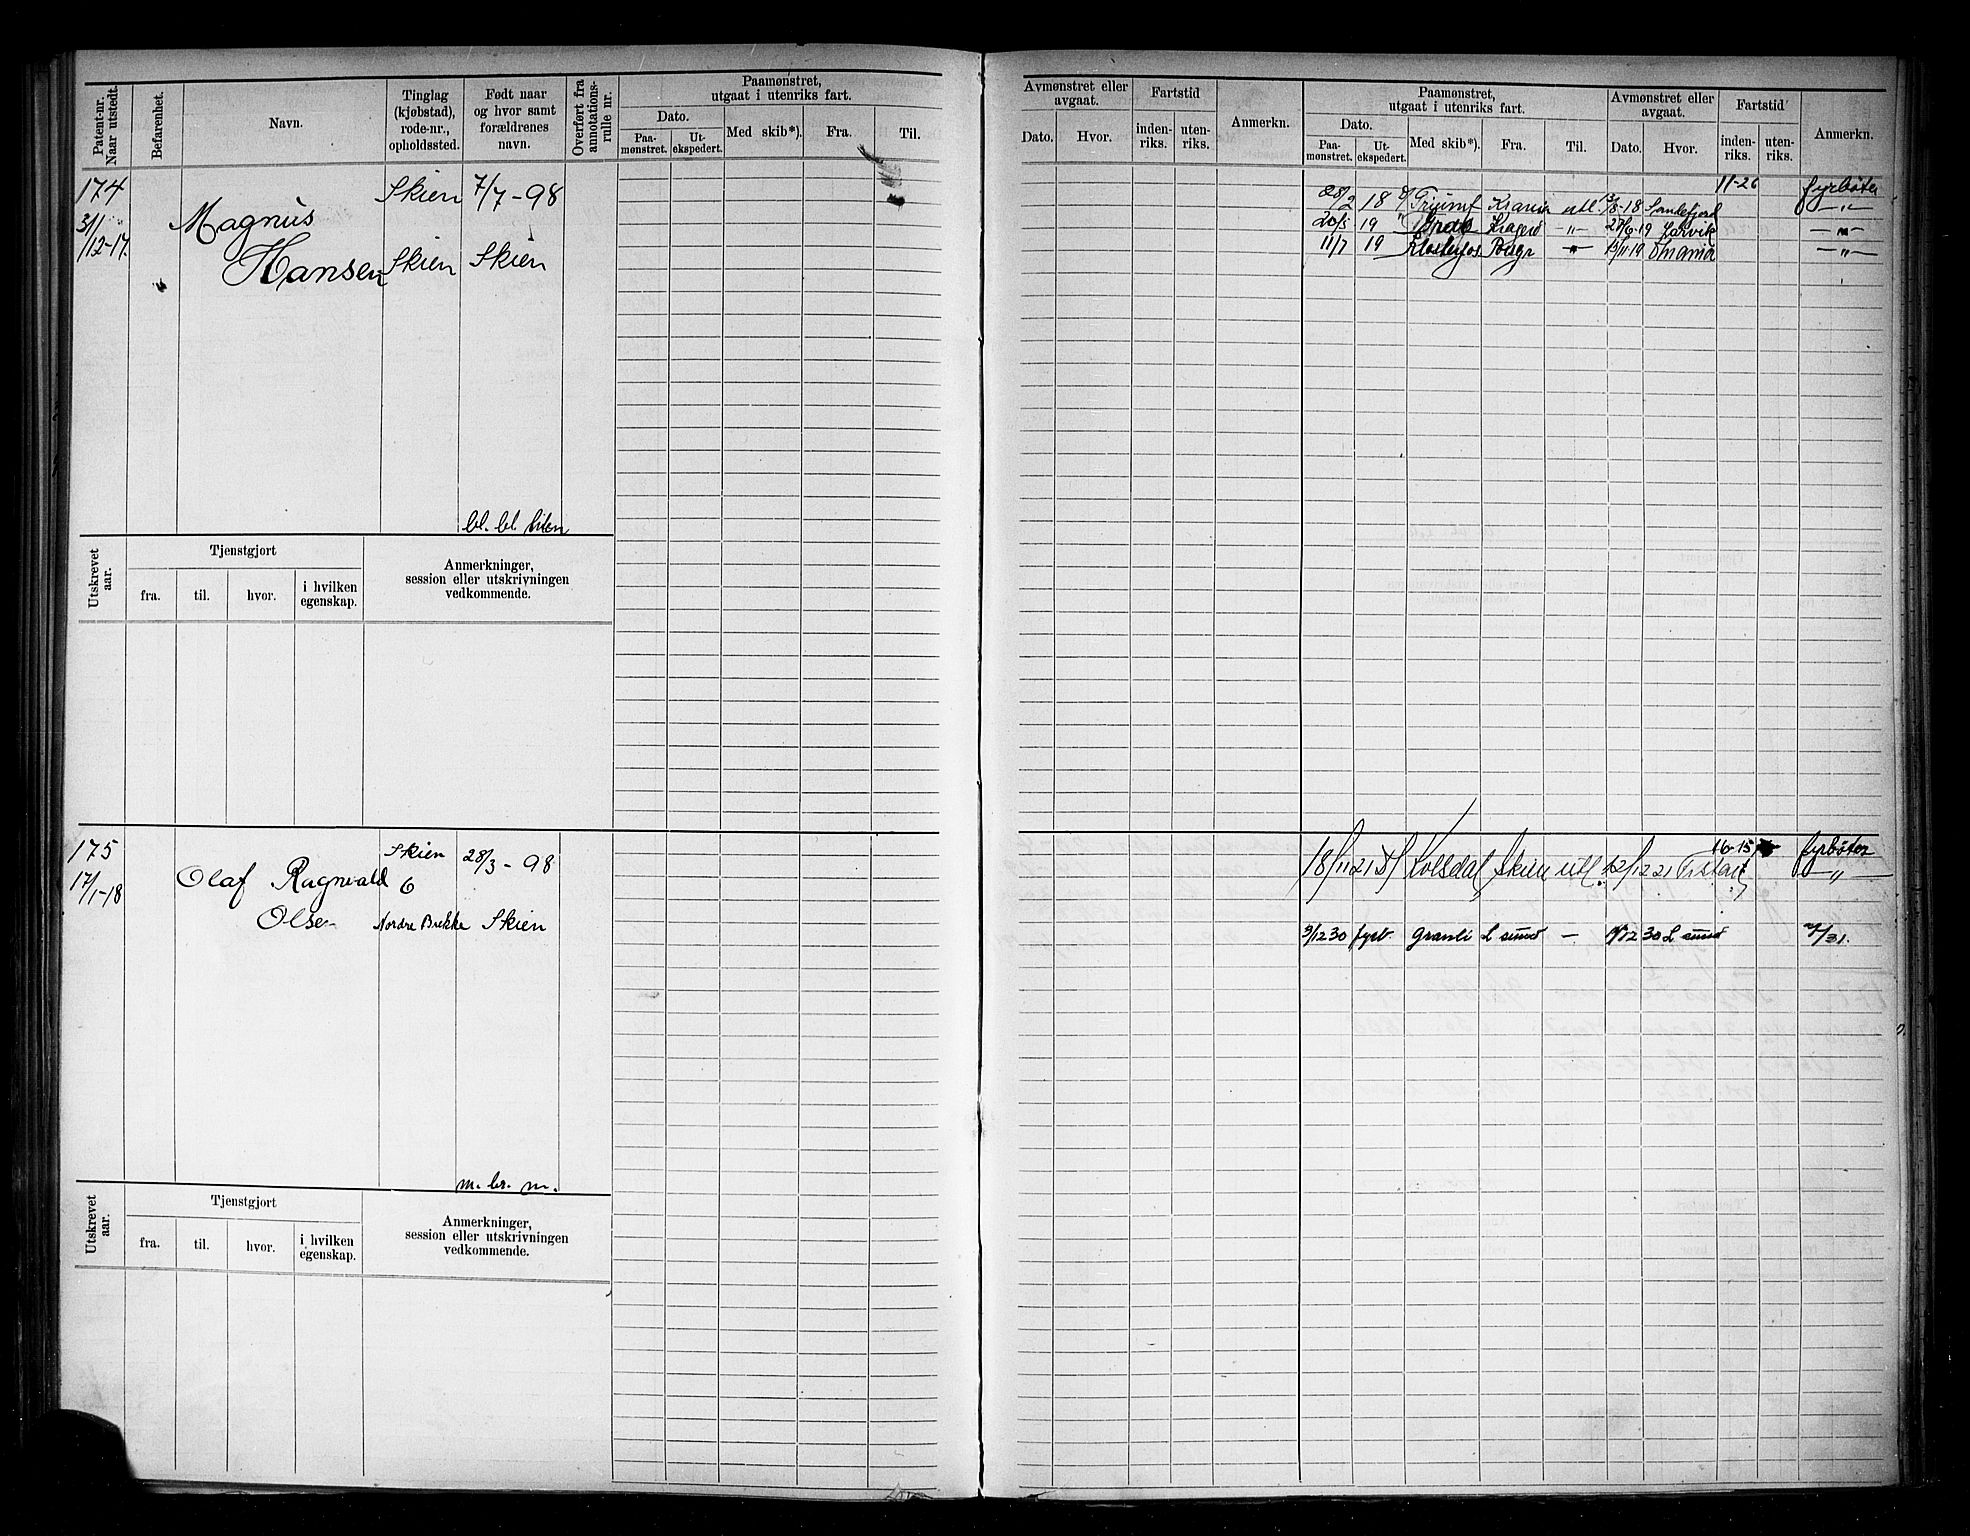 Patent-nr. Naar utstedt.
Befarenhet.
Navn.
Tinglag (kjøbstad), rode-nr., opholdssted.
Født naar og hvor samt forældrenes navn.
Overført fra annotations-rulle nr.
Paamønstret, utgaat i utenriks fart.
Dato.
Paa-mønstret.
Ut-ekspedert.
Med skib*).
Fra.
Til.
174
31/12-17.
Magnus
Hansen
Skien
Skien
7/7-98
Skien
bl. bl. liten
Utskrevet aar.
Tjenstgjort
fra.
til.
hvor.
i hvilken egenskap.
Anmerkninger, session eller utskrivningen vedkommende.
175
17/1-18
Olaf Ragnvald
Olsen
Skien
6
Nordre Brekke
28/3-98
Skien
m. br. m.
Utskrevet aar.
Tjenstgjort
fra.
til.
hvor.
i hvilken egenskap.
Anmerkninger, session eller utskrivningen vedkommende.
Avmønstret eller avgaat.
Dato.
Hvor.
Fartstid
inden-riks.
uten-riks.
Anmerkn.
Paamønstret, utgaat i utenriks fart.
Dato.
Paa-mønstret.
Ut-ekspedert.
Med skib*).
Fra.
Til.
Avmønstret eller avgaat.
Dato.
Hvor.
Fartstid
inden-riks.
uten-riks.
Anmerkn.
11-26 fyrbøter
28/2 18 Triumf utl. 18 Sandefjord -"-
20/5 19 Kragerø -"- 19 Larvik -"-
11/7 19 Porsgr -"-
16-15 fyrbøter
18/11 21 Skien utl 12 21 "
3/12 30 fyrb. Granli L sund — 30 L sund /31.